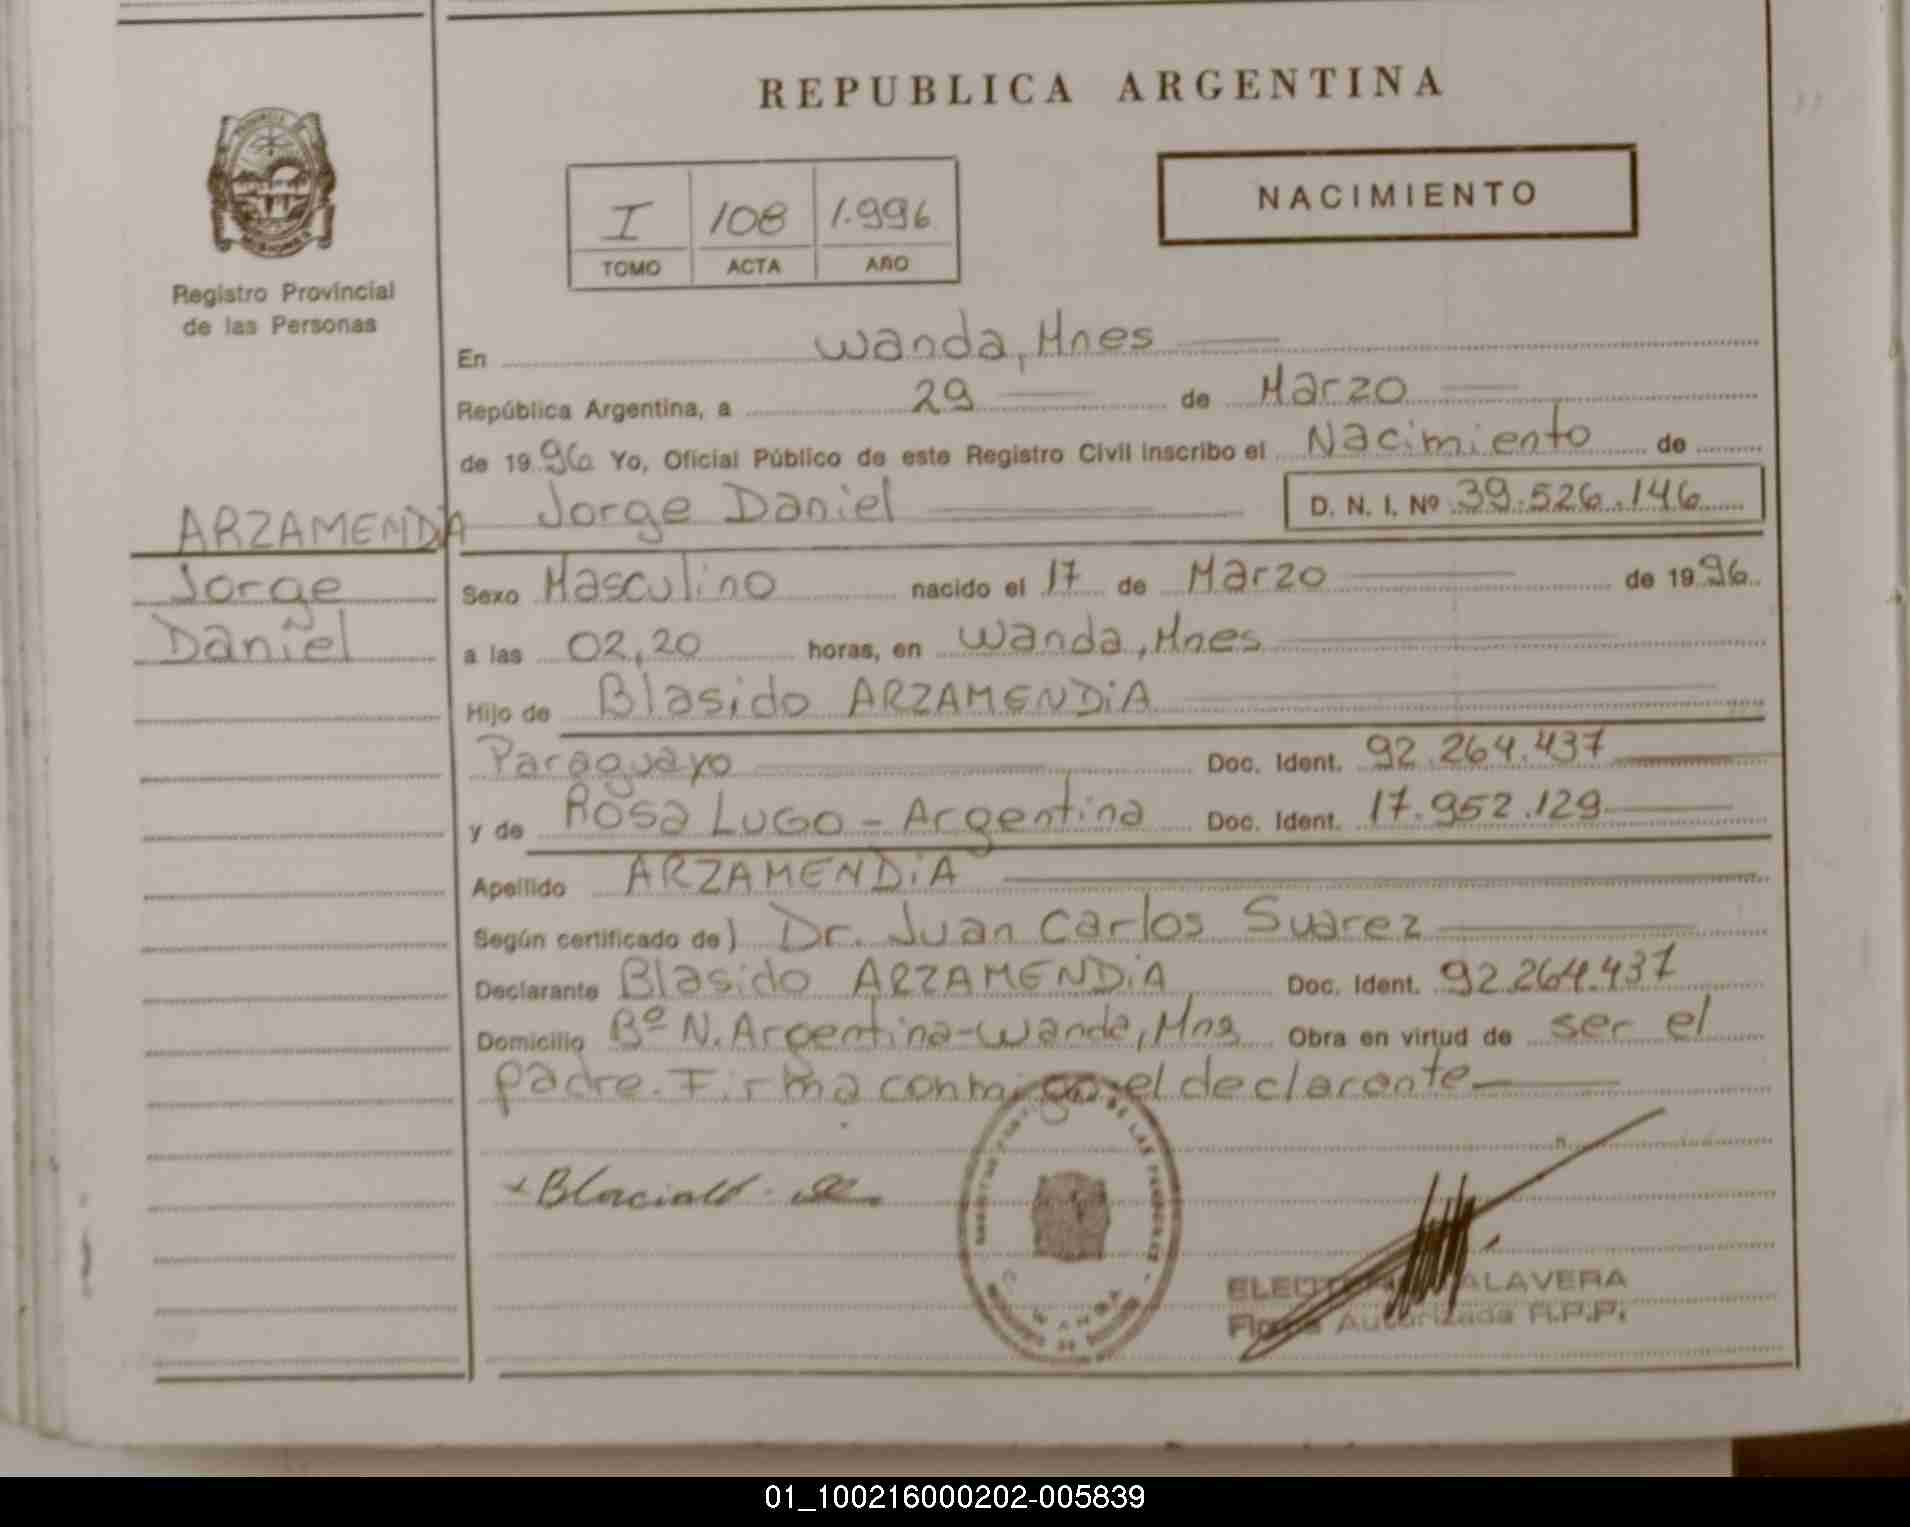 REPUBLICA ARGENTINA
NACIMIENTO
I 108 1.996
TOMO ACTA AÑO
Registro Provincial
de las Personas
En Wanda, Mnes
República Argentina, a 29 de Marzo
de 1996 Yo, Oficial Público de este Registro Civil inscribo el Nacimiento de
ARZAMENDIA
Jorge
Daniel
Jorge Daniel D. N. I. Nº 39.526.146
Sexo Masculino nacido el 17 de Marzo de 1996
a las 02,20 horas, en Wanda, Mnes
Hijo de Blasido ARZAMENDiA
Paraguayo Doc. Ident. 92.264.437
y de Rosa LUGO - Argentina Doc. Ident. 17.952.129
Apellido ARZAMENDiA
Según certificado de) Dr. Juan Carlos Suarez
Declarante Blasido ARZAMENDiA Doc. Ident. 92.264.437
Domicilio Bº N. Argentina - Wanda, Mns Obra en virtud de ser el
padre. Firma conmigo el declarante
DE LAS PERSONAS
WANDA
ALAVERA
Autorizada R.P.P.
01_100216000202-005839